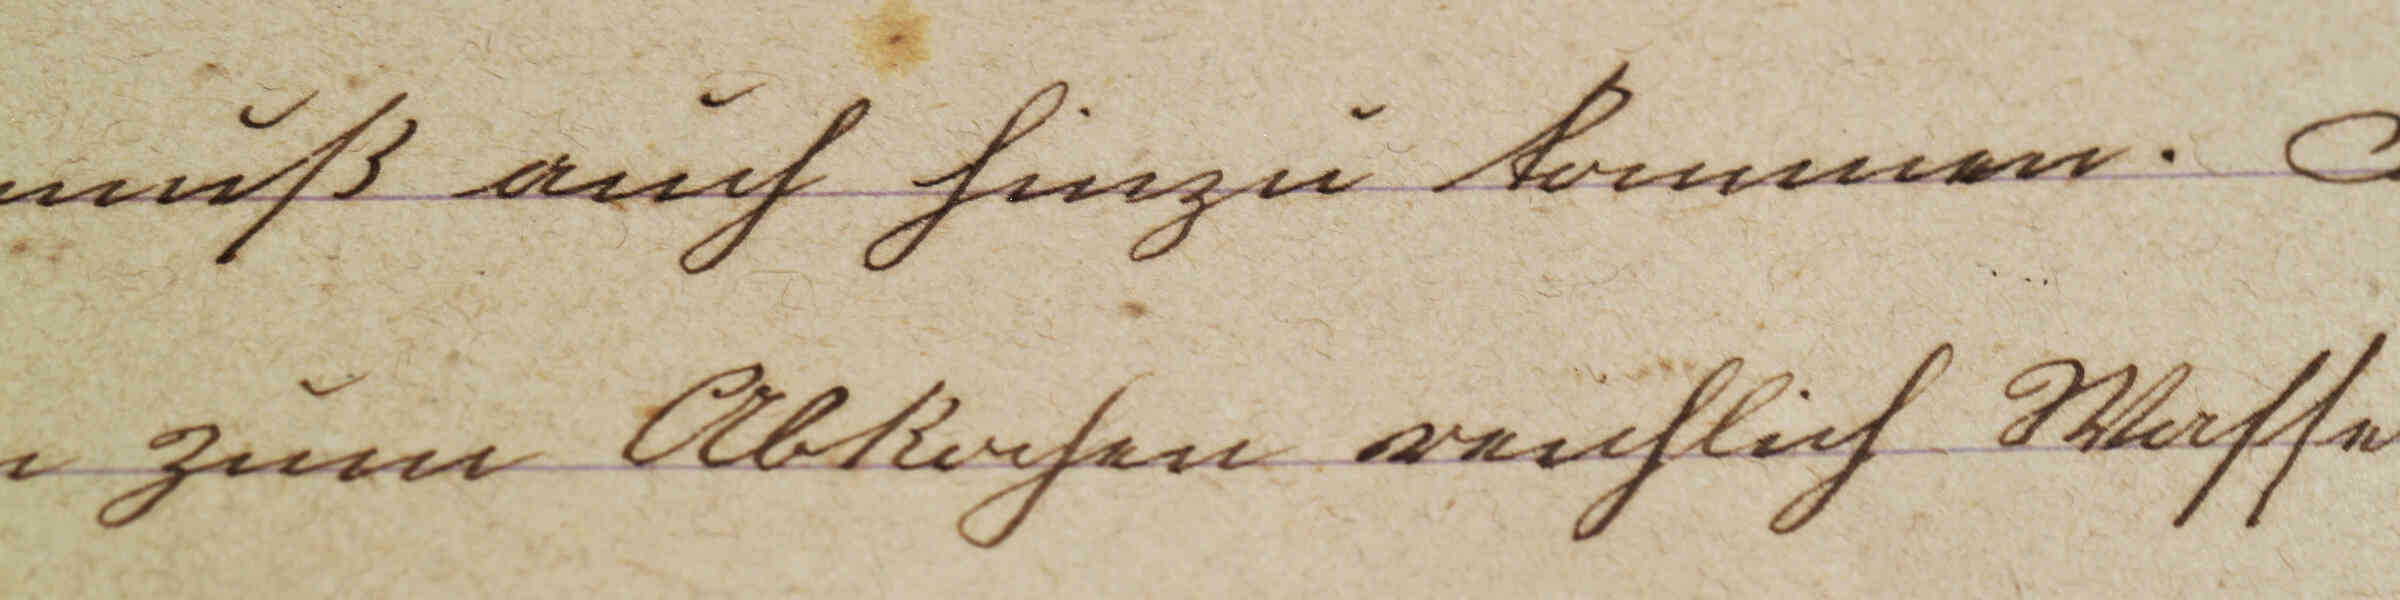 muß auch hinzu kommen.
zum Abkochen reichlich Wasse